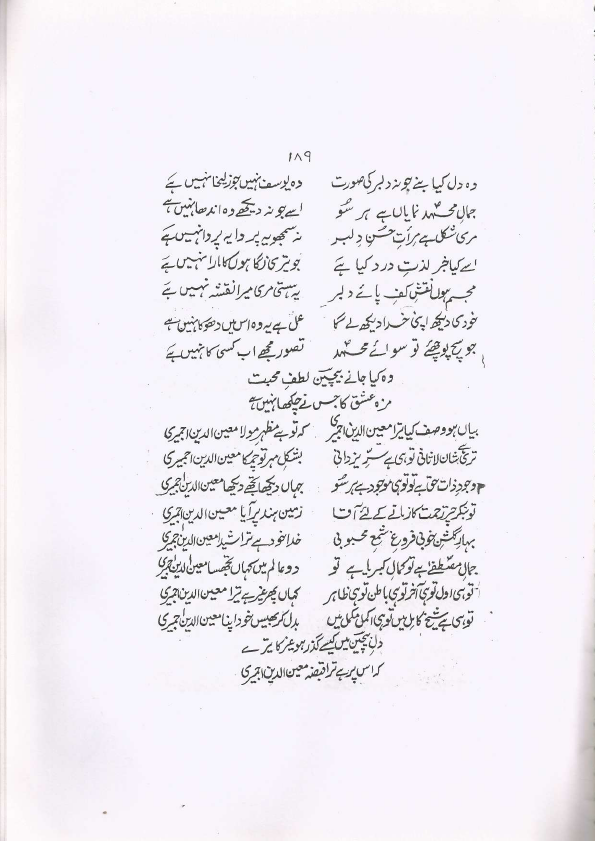 ۱۸۹
وہ دل کیا بنے جو نہ دلبر کی صورت وہ یوسف نہیں جو زلیخا نہیں ہے
جمالِ محمد نمایاں ہے ہر سُو اسے جو نہ دیکھے وہ اندھا نہیں ہے
مری شکل ہے مرأتِ حسنِ دلبر نہ سمجھو یہ پردا یہ پردا نہیں ہے
اسے کیا خبر لذتِ درد کیا ہے جو تری نگاہوں کا مارا نہیں ہے
مجسم ہوں نقشِ کفِ پائے دلبر یہ ہستی مری میرا نقشہ نہیں ہے
خودی دیکھ اپنی خدا دیکھ لے گا عمل ہے یہ وہ اس میں دھوکا نہیں ہے
جو سچ پوچھئے تو سوائے محمد تصور مجھے اب کسی کا نہیں ہے
وہ کیا جانے بیچین لطفِ محبت
مزہ عشق کا جس نے چکھا نہیں ہے
بیاں ہو وصف کیا ترا معین الدین اجمیری کہ تو ہے مظہرِ مولا معین الدین اجمیری
تری ہے شان لاثانی تو ہی ہے سرِّ یزدانی بشکلِ مہر تو چمکا معین الدین اجمیری
وجودِ ذات حق ہے تو تو ہی موجود ہے ہر سُو جہاں دیکھا تجھے دیکھا معین الدین اجمیری
تو بنکر چتر رحمت کا زمانے کے لئے آقا زمینِ ہند پر آیا معین الدین اجمیری
بہارِ گلشنِ خوبی فروغِ شمعِ محبوبی خدا خود ہے ترا شیدا معین الدین اجمیری
جمالِ مصطفےٰ ہے تو کمالِ کبریا ہے تو دو عالم میں کہاں تجھسا معین الدین اجمیری
تو ہی اول تو ہی آخر تو ہی باطن تو ہی ظاہر کہاں پھر غیر ہے ترا معین الدین اجمیری
تو ہی ہے شیخ کامل میں تو ہی اکمل مکمل میں بدل کر بھیس خود اپنا معین الدین اجمیری
دلِ بیچین میں کیسے گذر ہو غیر کا ترے
کہ اس پر ہے ترا قبضہ معین الدین اجمیری